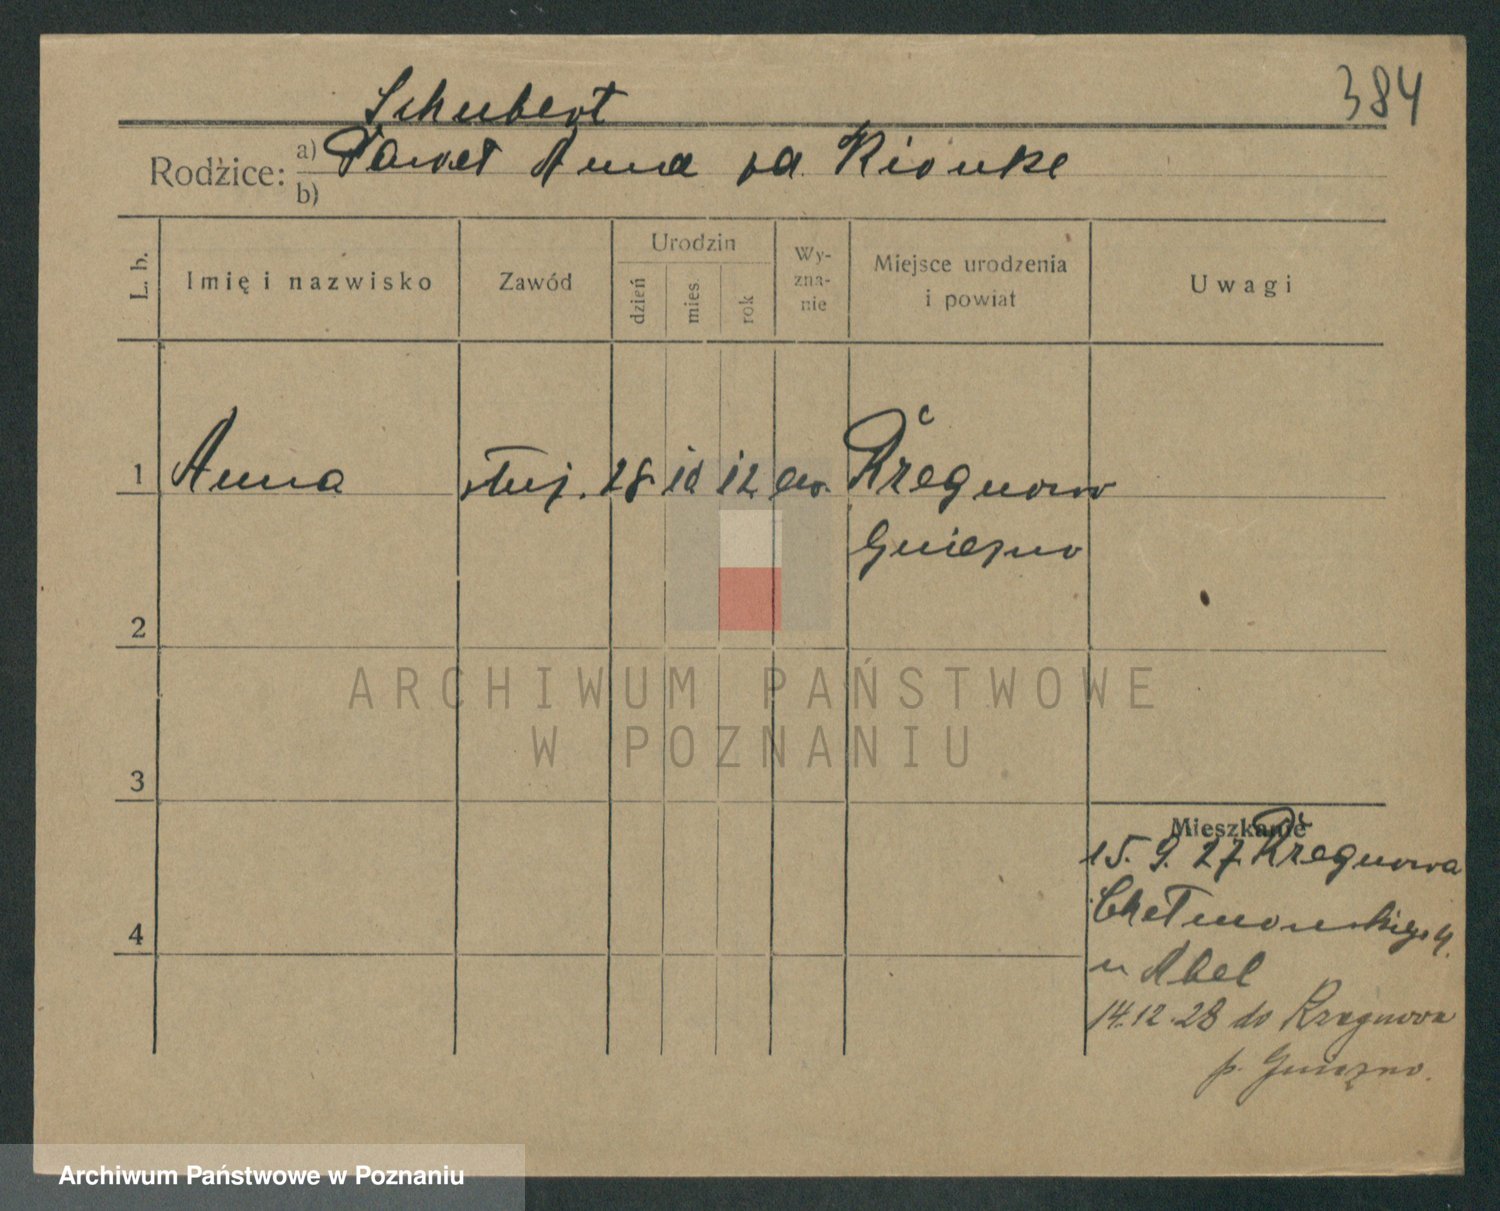 384
Schubert
Rodzice: a) Paweł Anna zd. Kionke
b)
L. b. Imię i nazwisko Zawód Urodzin dzień mies. rok Wy-zna-nie Miejsce urodzenia i powiat Uwagi
1 Anna służ. 28 10 12 ew. Rżegnowo
Gniezno
2
ARCHIWUM PAŃSTWOWE
W POZNANIU
3
Mieszkanie
15. 9. 27. Rżegnowa
Chełmońskiego 4.
4
u Abel
14.12.28 do Rzegnowa
p. Gniezno.
Archiwum Państwowe w Poznaniu